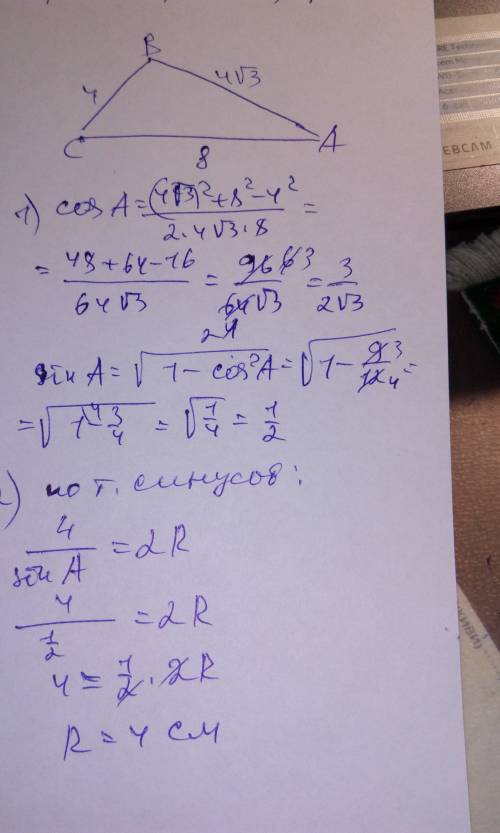 B
4
4√3
C
8
A
EBCAM
1) cos A = (4√3)² + 8² - 4² / 2·4√3·8 =
= 48+64-16 / 64√3 = 96 6 3 / 64√3 = 3 / 2√3
2 4
sin A = √1 - cos²A = √1 - 9 3 / 12 4 =
= √1 - 3/4 = √1/4 = 1/2
2) по т. синусов:
4 / sin A = 2R
4 / 1/2 = 2R
4 = 1/2 · 2R
R = 4 см